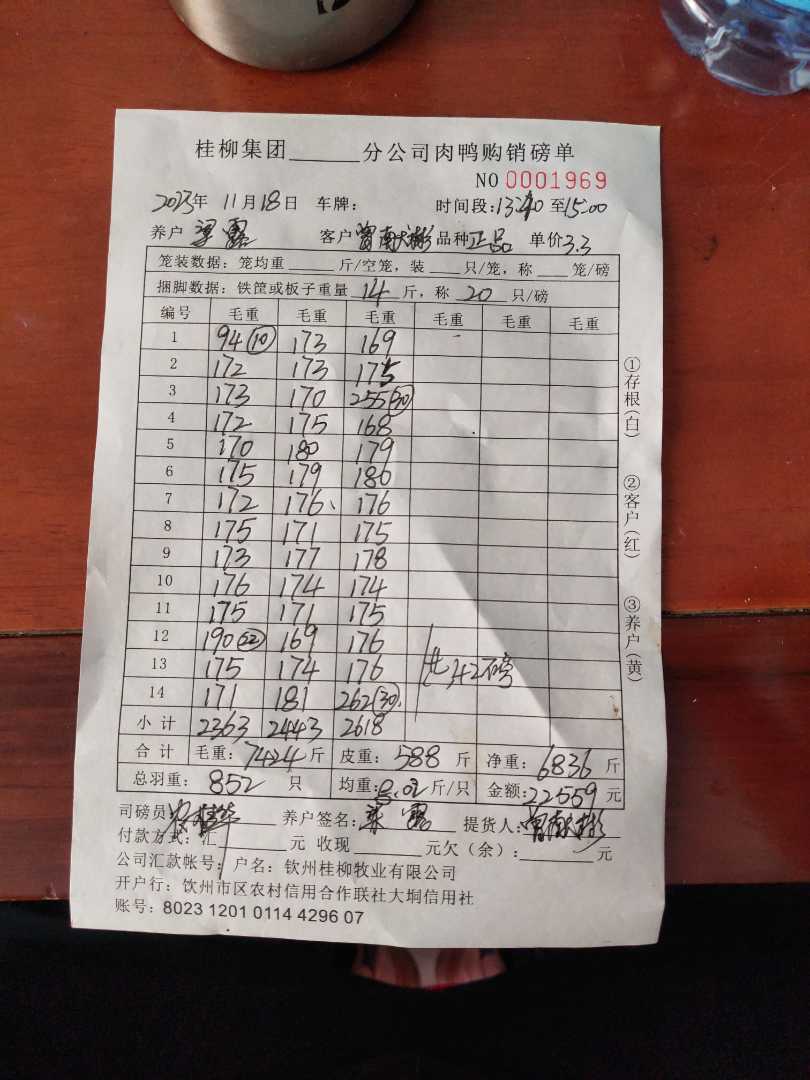 桂柳集团______分公司肉鸭购销磅单
NO 0001969
2023年 11月18日 车牌： 时间段：13:40至15:00
养户 梁露 客户 曾南彬 品种 正品 单价3.3
笼装数据：笼均重____斤/空笼，装___只/笼，称___笼/磅
捆脚数据：铁筐或板子重量 14 斤，称 20 只/磅
编号 毛重 毛重 毛重 毛重 毛重 毛重
1 94(10) 173 169
2 172 173 175
3 173 170 255(30)
4 172 175 168
5 170 180 179
6 175 179 180
7 172 176 176
8 175 171 175
9 173 177 178
10 176 174 174
11 175 171 175
12 190(22) 169 176
13 175 174 176 共42磅
14 171 181 262(30)
小计 2363 2443 2618
合计 毛重：7424斤 皮重：588斤 净重：6836斤
总羽重：852只 均重：8.02斤/只 金额：22559元
司磅员： 养户签名：梁露 提货人：曾南彬
付款方式：汇______元 收现______元欠（余）：______元
公司汇款帐号：户名：钦州桂柳牧业有限公司
开户行：钦州市区农村信用合作联社大垌信用社
账号：8023 1201 0114 4296 07
①存根(白) ②客户(红) ③养户(黄)